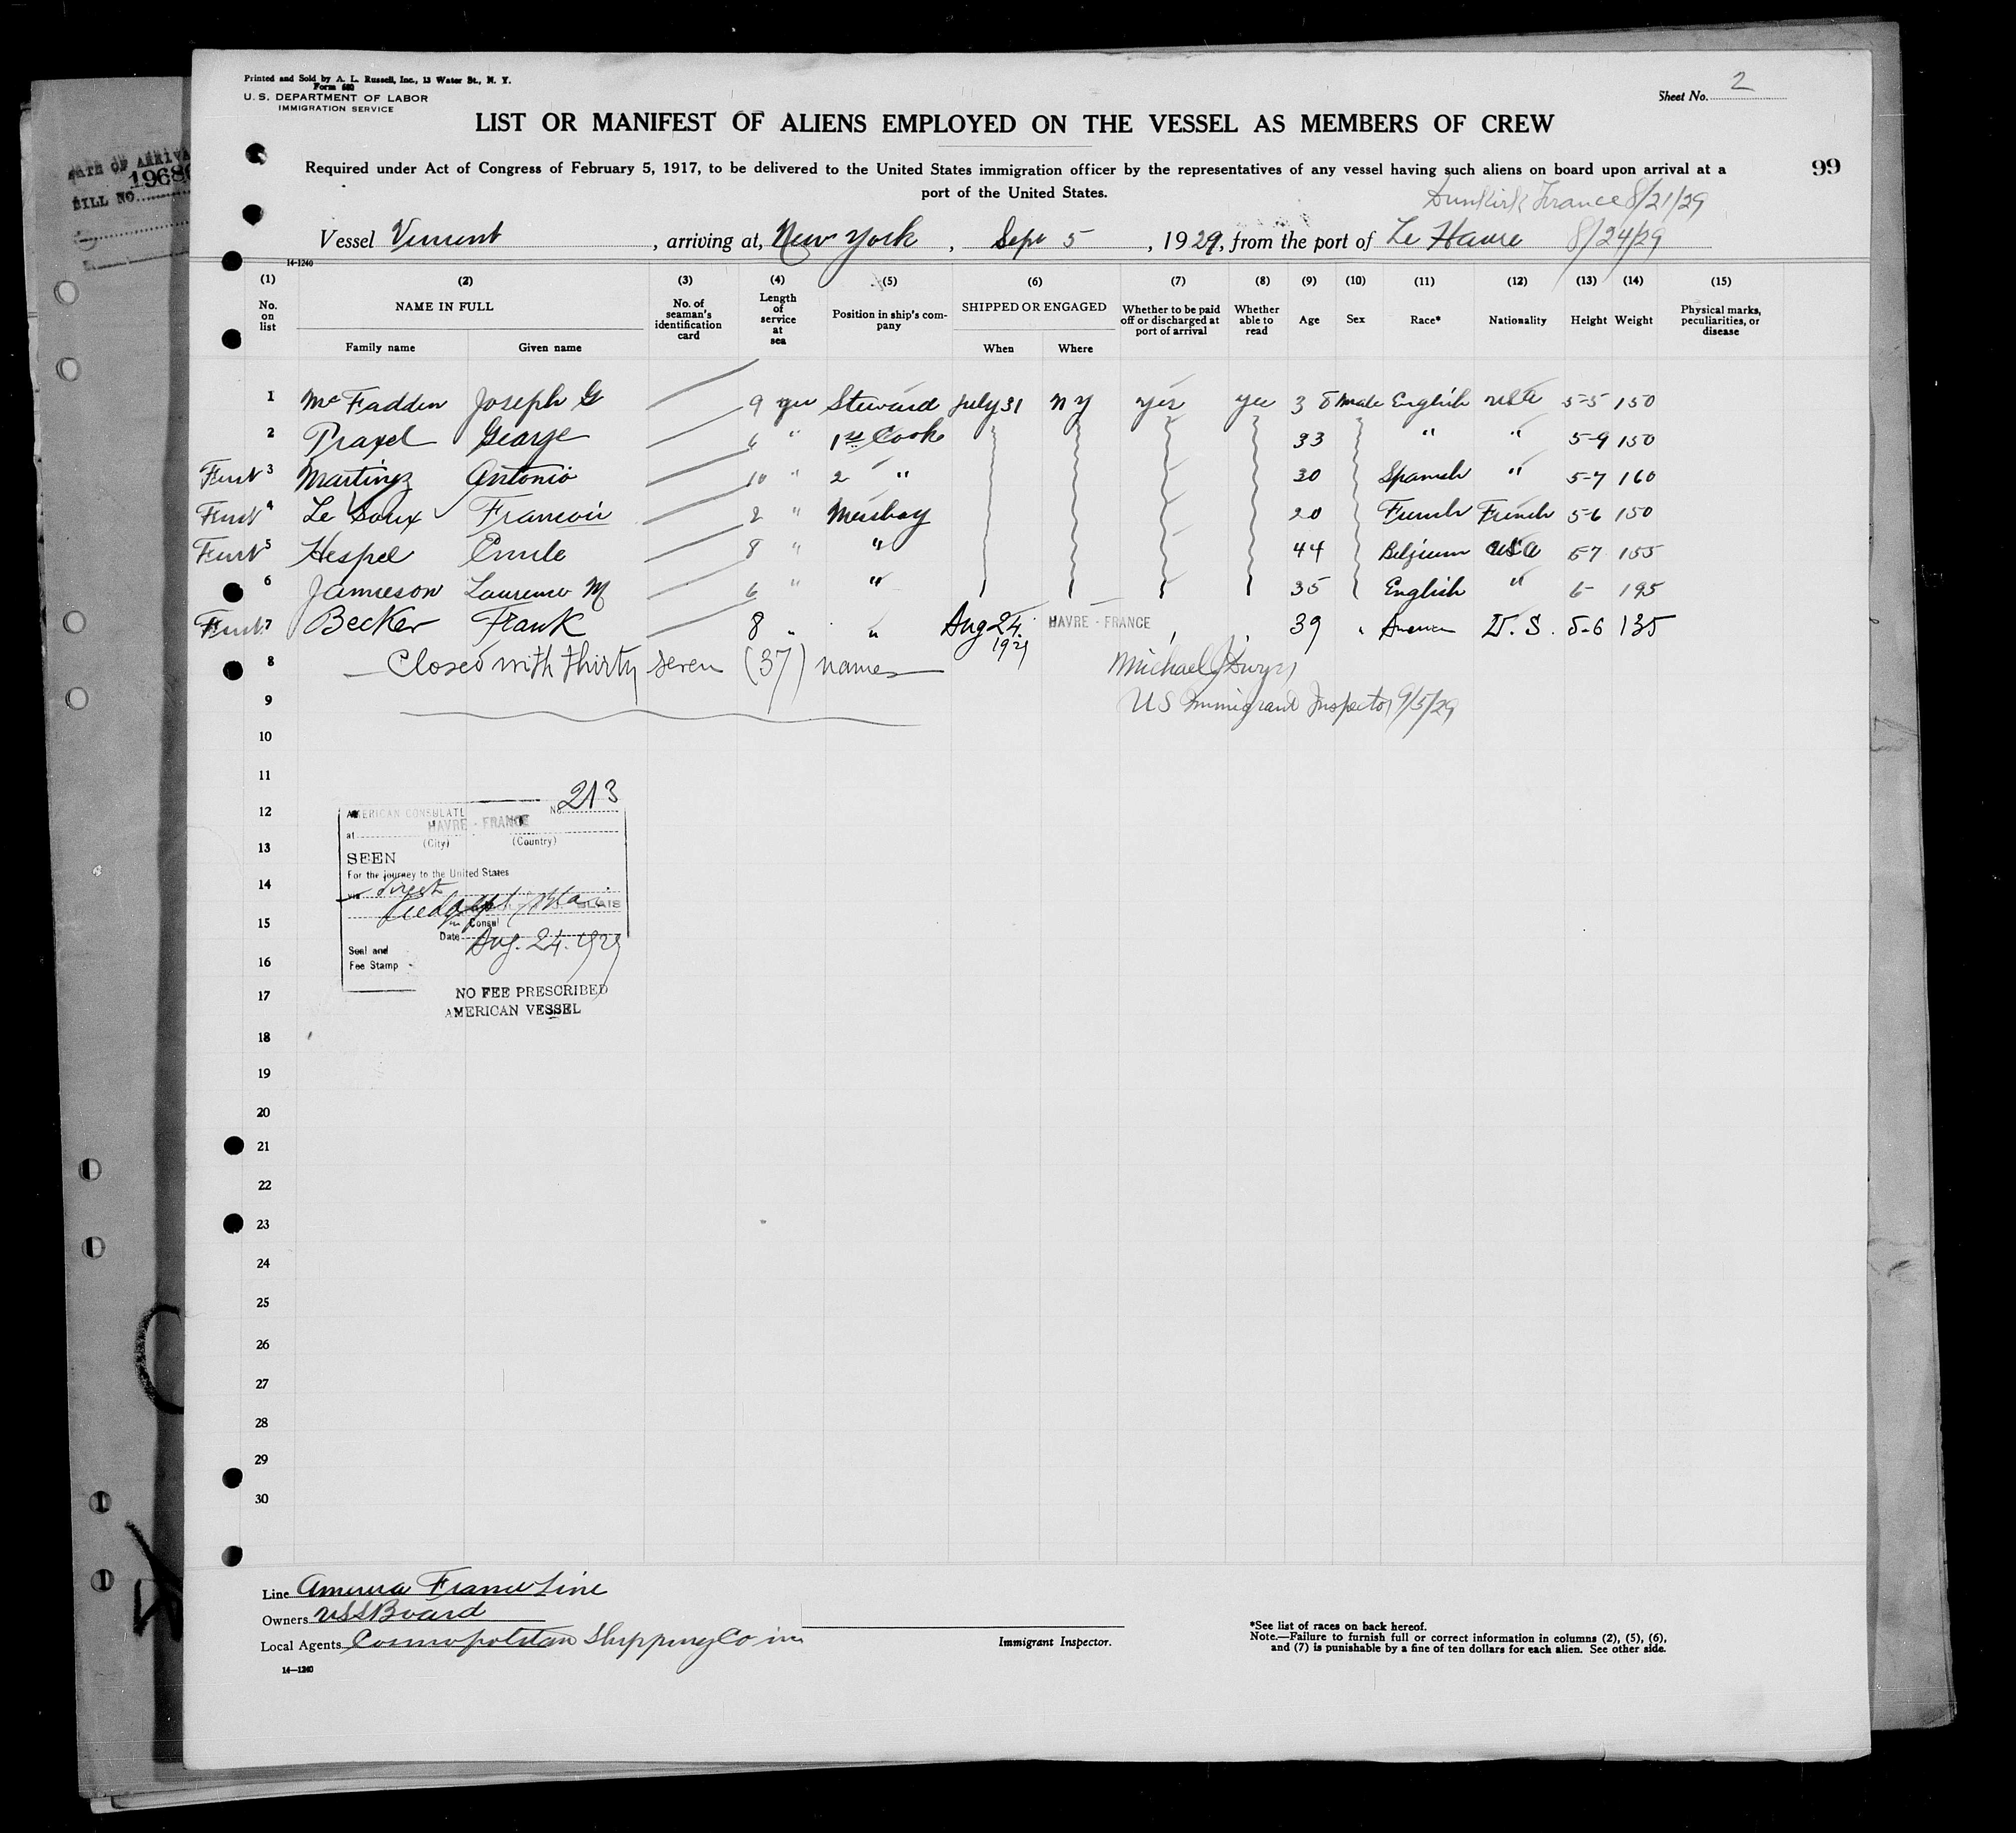 Printed and Sold by A. L. Russell, Inc., 13 Water St., N. Y.
Form 680
U. S. DEPARTMENT OF LABOR
IMMIGRATION SERVICE
Sheet No. 2
LIST OR MANIFEST OF ALIENS EMPLOYED ON THE VESSEL AS MEMBERS OF CREW
Required under Act of Congress of February 5, 1917, to be delivered to the United States immigration officer by the representatives of any vessel having such aliens on board upon arrival at a
port of the United States.
99
DATE OF ARRIVA
BILL NO. 1968
Dunkirk France 8/21/29
Vessel Vincent, arriving at, New York, Sept 5, 1929, from the port of Le Havre 8/24/29
14-1240
(1) (2) (3) (4) (5) (6) (7) (8) (9) (10) (11) (12) (13) (14) (15)
No. on list NAME IN FULL Family name Given name No. of seaman's identification card Length of service at sea Position in ship's company SHIPPED OR ENGAGED When Where Whether to be paid off or discharged at port of arrival Whether able to read Age Sex Race* Nationality Height Weight Physical marks, peculiarities, or disease
1 McFadden Joseph G 9 yrs Steward July 31 NY yes yes 38 male English USA 5-5 150
2 George 6 " 1st Cook 33 " " 5-9 150
First 3 Martinez Antonio 10 " 2 " 30 Spanish " 5-7 160
First 4 Le Francois 2 " Messboy 20 French French 5-6 150
First 5 Hespel Emile 8 " " 44 Belgium USA 5-7 155
6 Jamieson Laurence M 6 " " 35 English " 6- 195
First 7 Becker Frank 8 " " Aug 24. 1929 HAVRE - FRANCE 39 " American U. S. 5-6 135
8 Closed with thirty seven (37) names Michael J Dwyer
9 US Immigrant Inspector 9/5/29
10
11
12
13
14
15
16
17
18
19
20
21
22
23
24
25
26
27
28
29
30
AMERICAN CONSULATE No. 213
at HAVRE - FRANCE
(City) (Country)
SEEN
For the journey to the United States
via direct
BLAIS
Consul
Date Aug. 24. 1929
Seal and
Fee Stamp
NO FEE PRESCRIBED
AMERICAN VESSEL
Line America France Line
Owners USS Board
Local Agents Cosmopolitan Shipping Co inc
Immigrant Inspector.
14-1240
*See list of races on back hereof.
Note.—Failure to furnish full or correct information in columns (2), (5), (6),
and (7) is punishable by a fine of ten dollars for each alien. See other side.